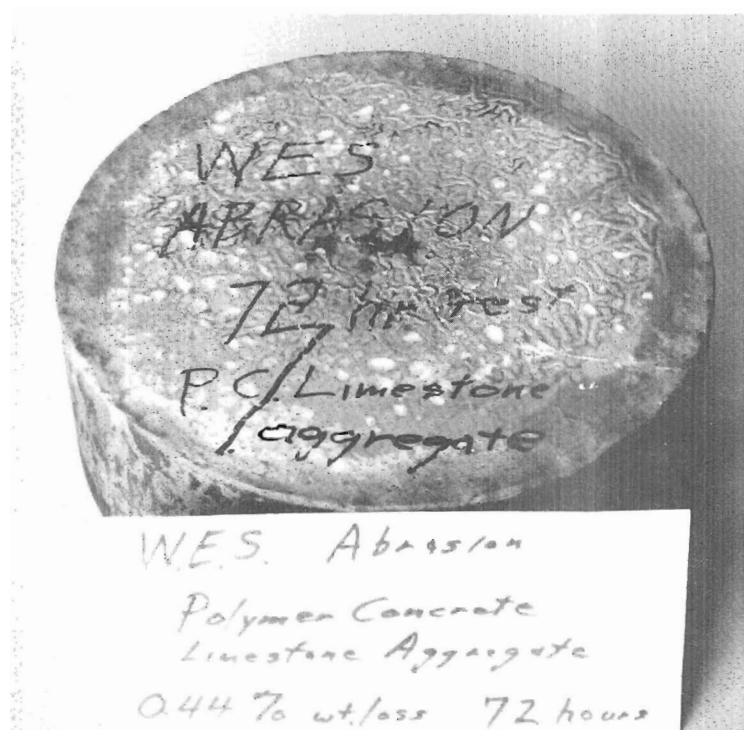 WES
ABRASION
72 hr Test
P.C. Limestone
aggregate
W.E.S. Abrasion
Polymer Concrete
Limestone Aggregate
0.44 % wt. loss 72 hours